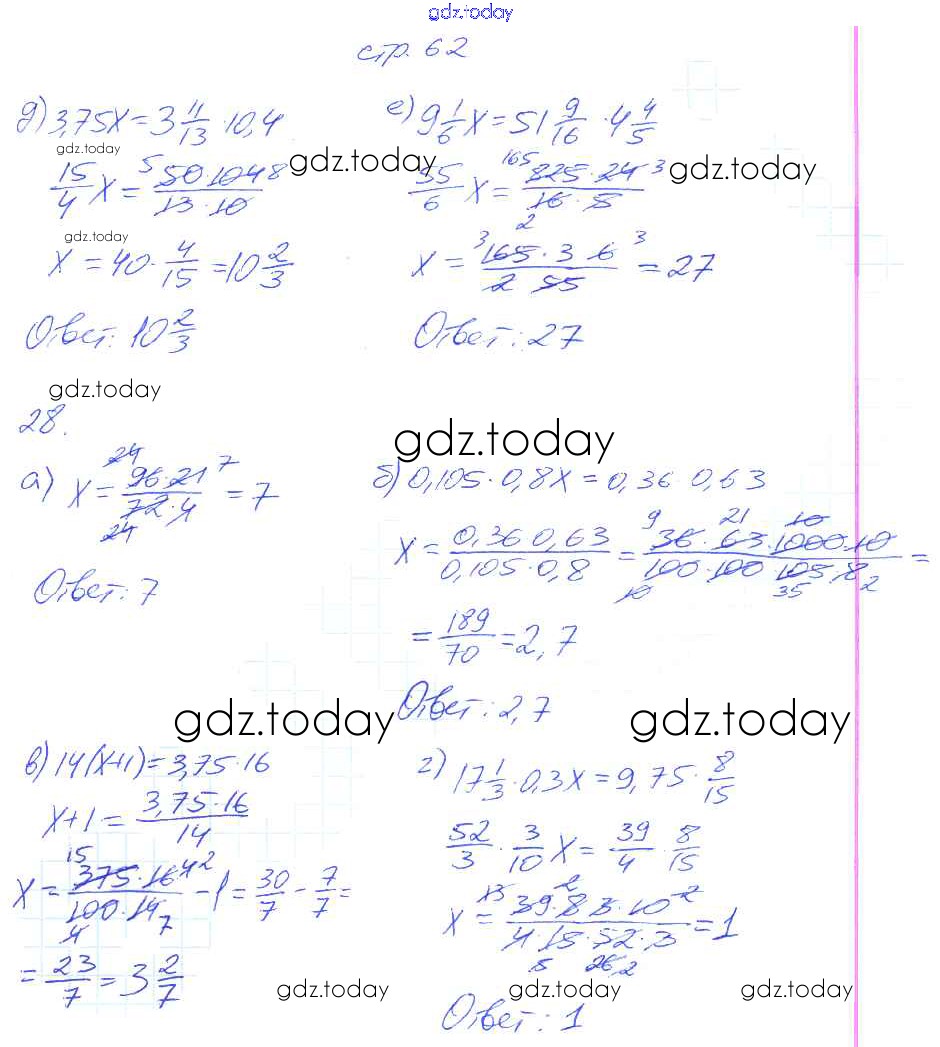 gdz.today
стр. 62
д) 3,75x = 3 11/13 · 10,4
gdz.today
15/4 x = 5 50·104 8 / 13·10
gdz.today
gdz.today
x = 40 · 4/15 = 10 2/3
Ответ: 10 2/3
е) 9 1/6 x = 51 9/16 · 4 4/5
55/6 x = 165 825·24 3 / 16·5 2
gdz.today
x = 3 165·3 6 3 / 2 55 = 27
Ответ: 27
gdz.today
28.
gdz.today
а) x = 24 96·21 7 / 72·4 24 = 7
Ответ: 7
б) 0,105·0,8x = 0,36 0,63
x = 0,36 0,63 / 0,105·0,8 = 9 21 10 36·63·1000·10 / 100·100 105·8 2 10 35 =
= 189/70 = 2,7
Ответ: 2,7
gdz.today
gdz.today
в) 14(x+1) = 3,75·16
x+1 = 3,75·16 / 14
x = 15 375·16 4 2 / 100·14 7 4 - 1 = 30/7 - 7/7 =
= 23/7 = 3 2/7
г) 17 1/3 · 0,3x = 9,75 · 8/15
52/3 · 3/10 x = 39/4 · 8/15
x = 13 2 39·8 3·10 2 / 4·15·52·3 5 26 2 = 1
gdz.today
gdz.today
gdz.today
Ответ: 1